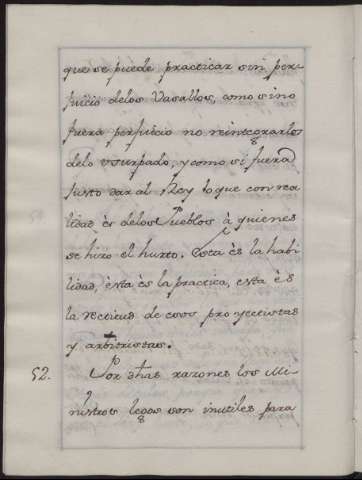 que se puede practicar sin per-
juicio delos Vasallos, como sino
fuera perjuicio no reintegrarlos
delo usurpado, y como si fuera
justo dar al Rey lo que con rea
lidad és delos Pueblos à quienes
se hizo el hurto. Esta és la habi
lidad, ésta és la practica, esta és
la rectitud de esos proyectistas
y arbitristas.
52. Por dhas razones los Mi
nistros legos son inutiles para